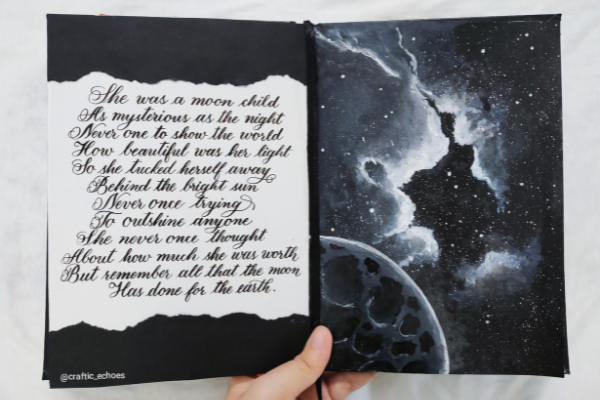 She was a moon child
As mysterious as the night
Never one to show the world
How beautiful was her light
So she tucked herself away
Behind the bright sun
Never once trying
To outshine anyone
She never once thought
About how much she was worth
But remember all that the moon
Has done for the earth.
@craftic_echoes